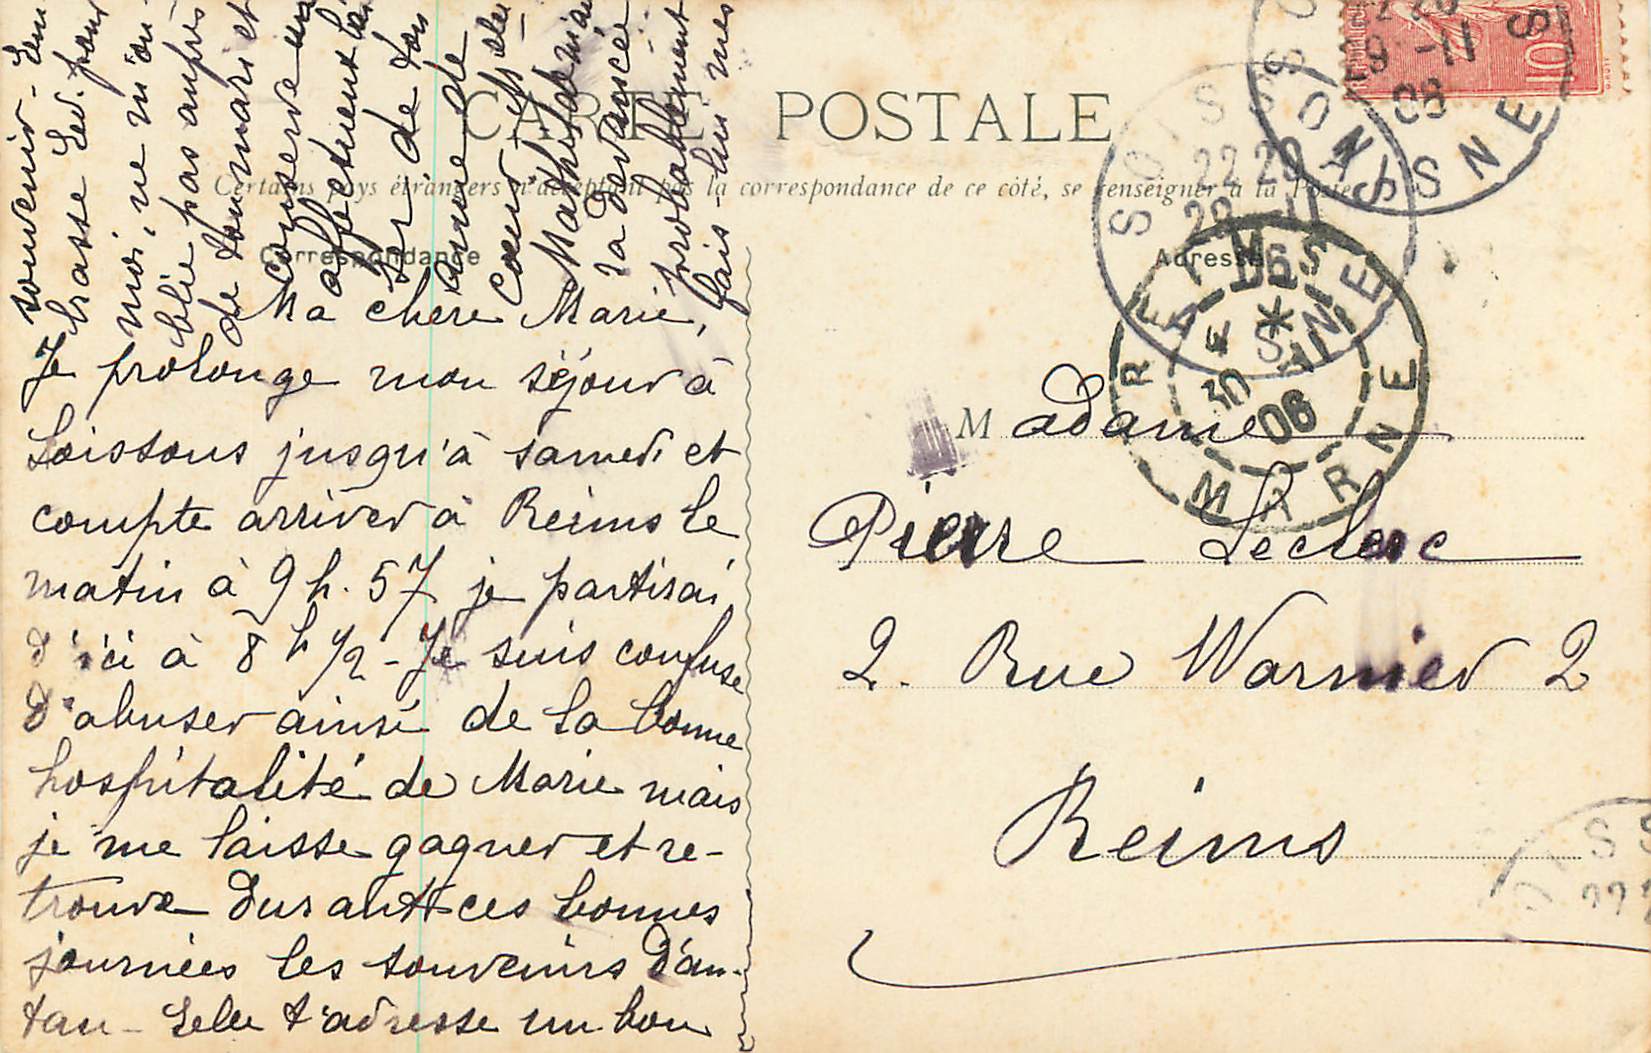 CARTE POSTALE
Certains pays étrangers n'acceptant pas la correspondance de ce côté, se renseigner à la Poste
Correspondance
Adresse
Ma chère Marie,
Je prolonge mon séjour à
Soissons jusqu'à samedi et
compte arriver à Reims le
matin à 9 h. 57 je partirai
d'ici à 8 h 1/2 - Je suis confuse
d'abuser ainsi de la bonne
hospitalité de Marie mais
je me laisse gagner et re-
trouve durant ces bonnes
journées les souvenirs d'an-
tan - Lélée t'adresse un bon
souvenir -
brasse Led. pour
moi, ne m'ou-
blie pas auprès
de ton mari et
conserve
affectueux
de ton
amie de
cœur
Mathilde
la devancée
probablement
fais-lui mes
M adame
Pierre Leclerc
2. Rue Warnier 2
Reims
SOISSONS AISNE
22 20
29 -11
06
REIMS MARNE
30 11
06
10